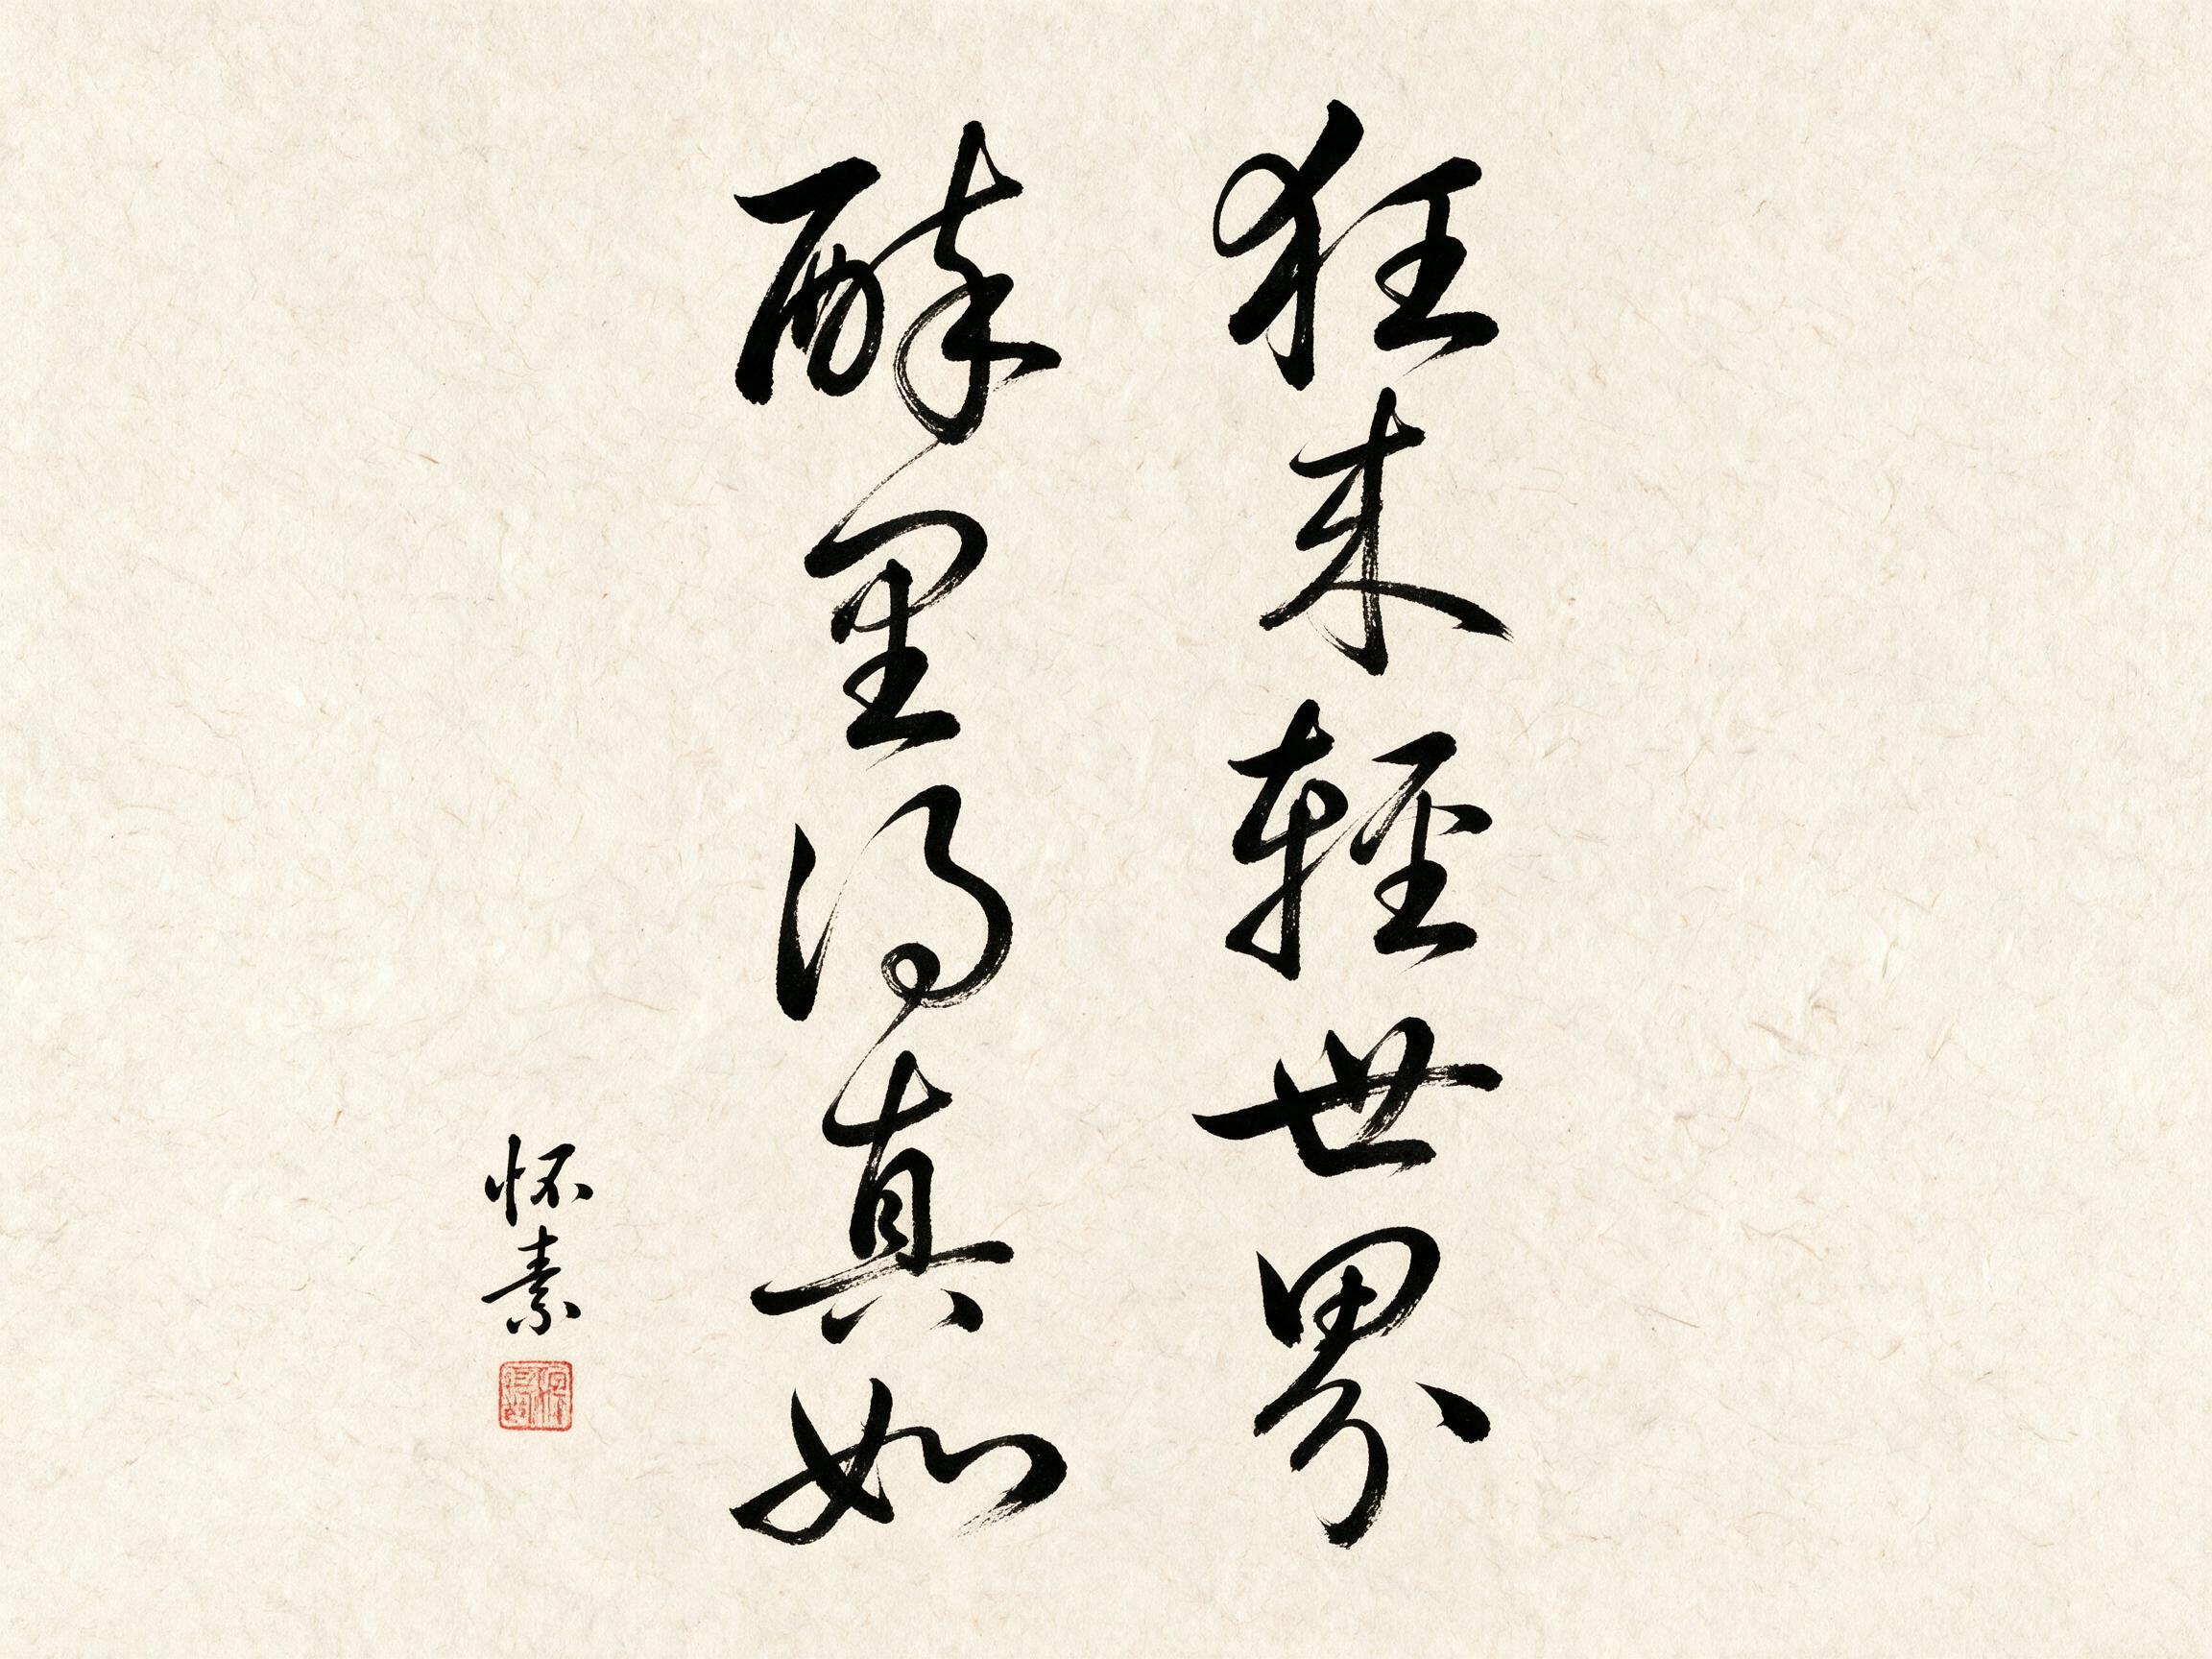 狂来輕世界
醉里得真如
怀素